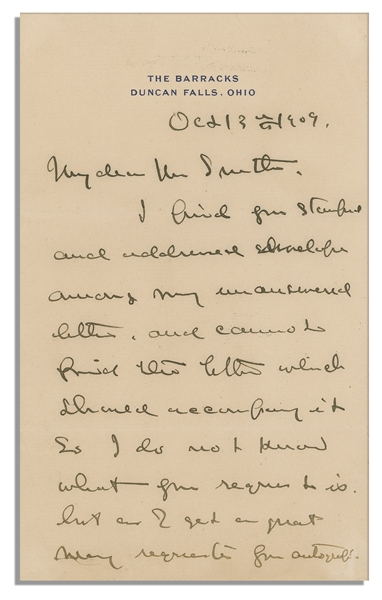 THE BARRACKS
DUNCAN FALLS, OHIO
Oct 13th 1909.
My dear Mr Smith.
I find your stamped
and addressed envelope
among my unanswered
letters, and cannot
find the letter which
should accompany it
So I do not know
what your request is.
but as I get a great
many requests for autographs.